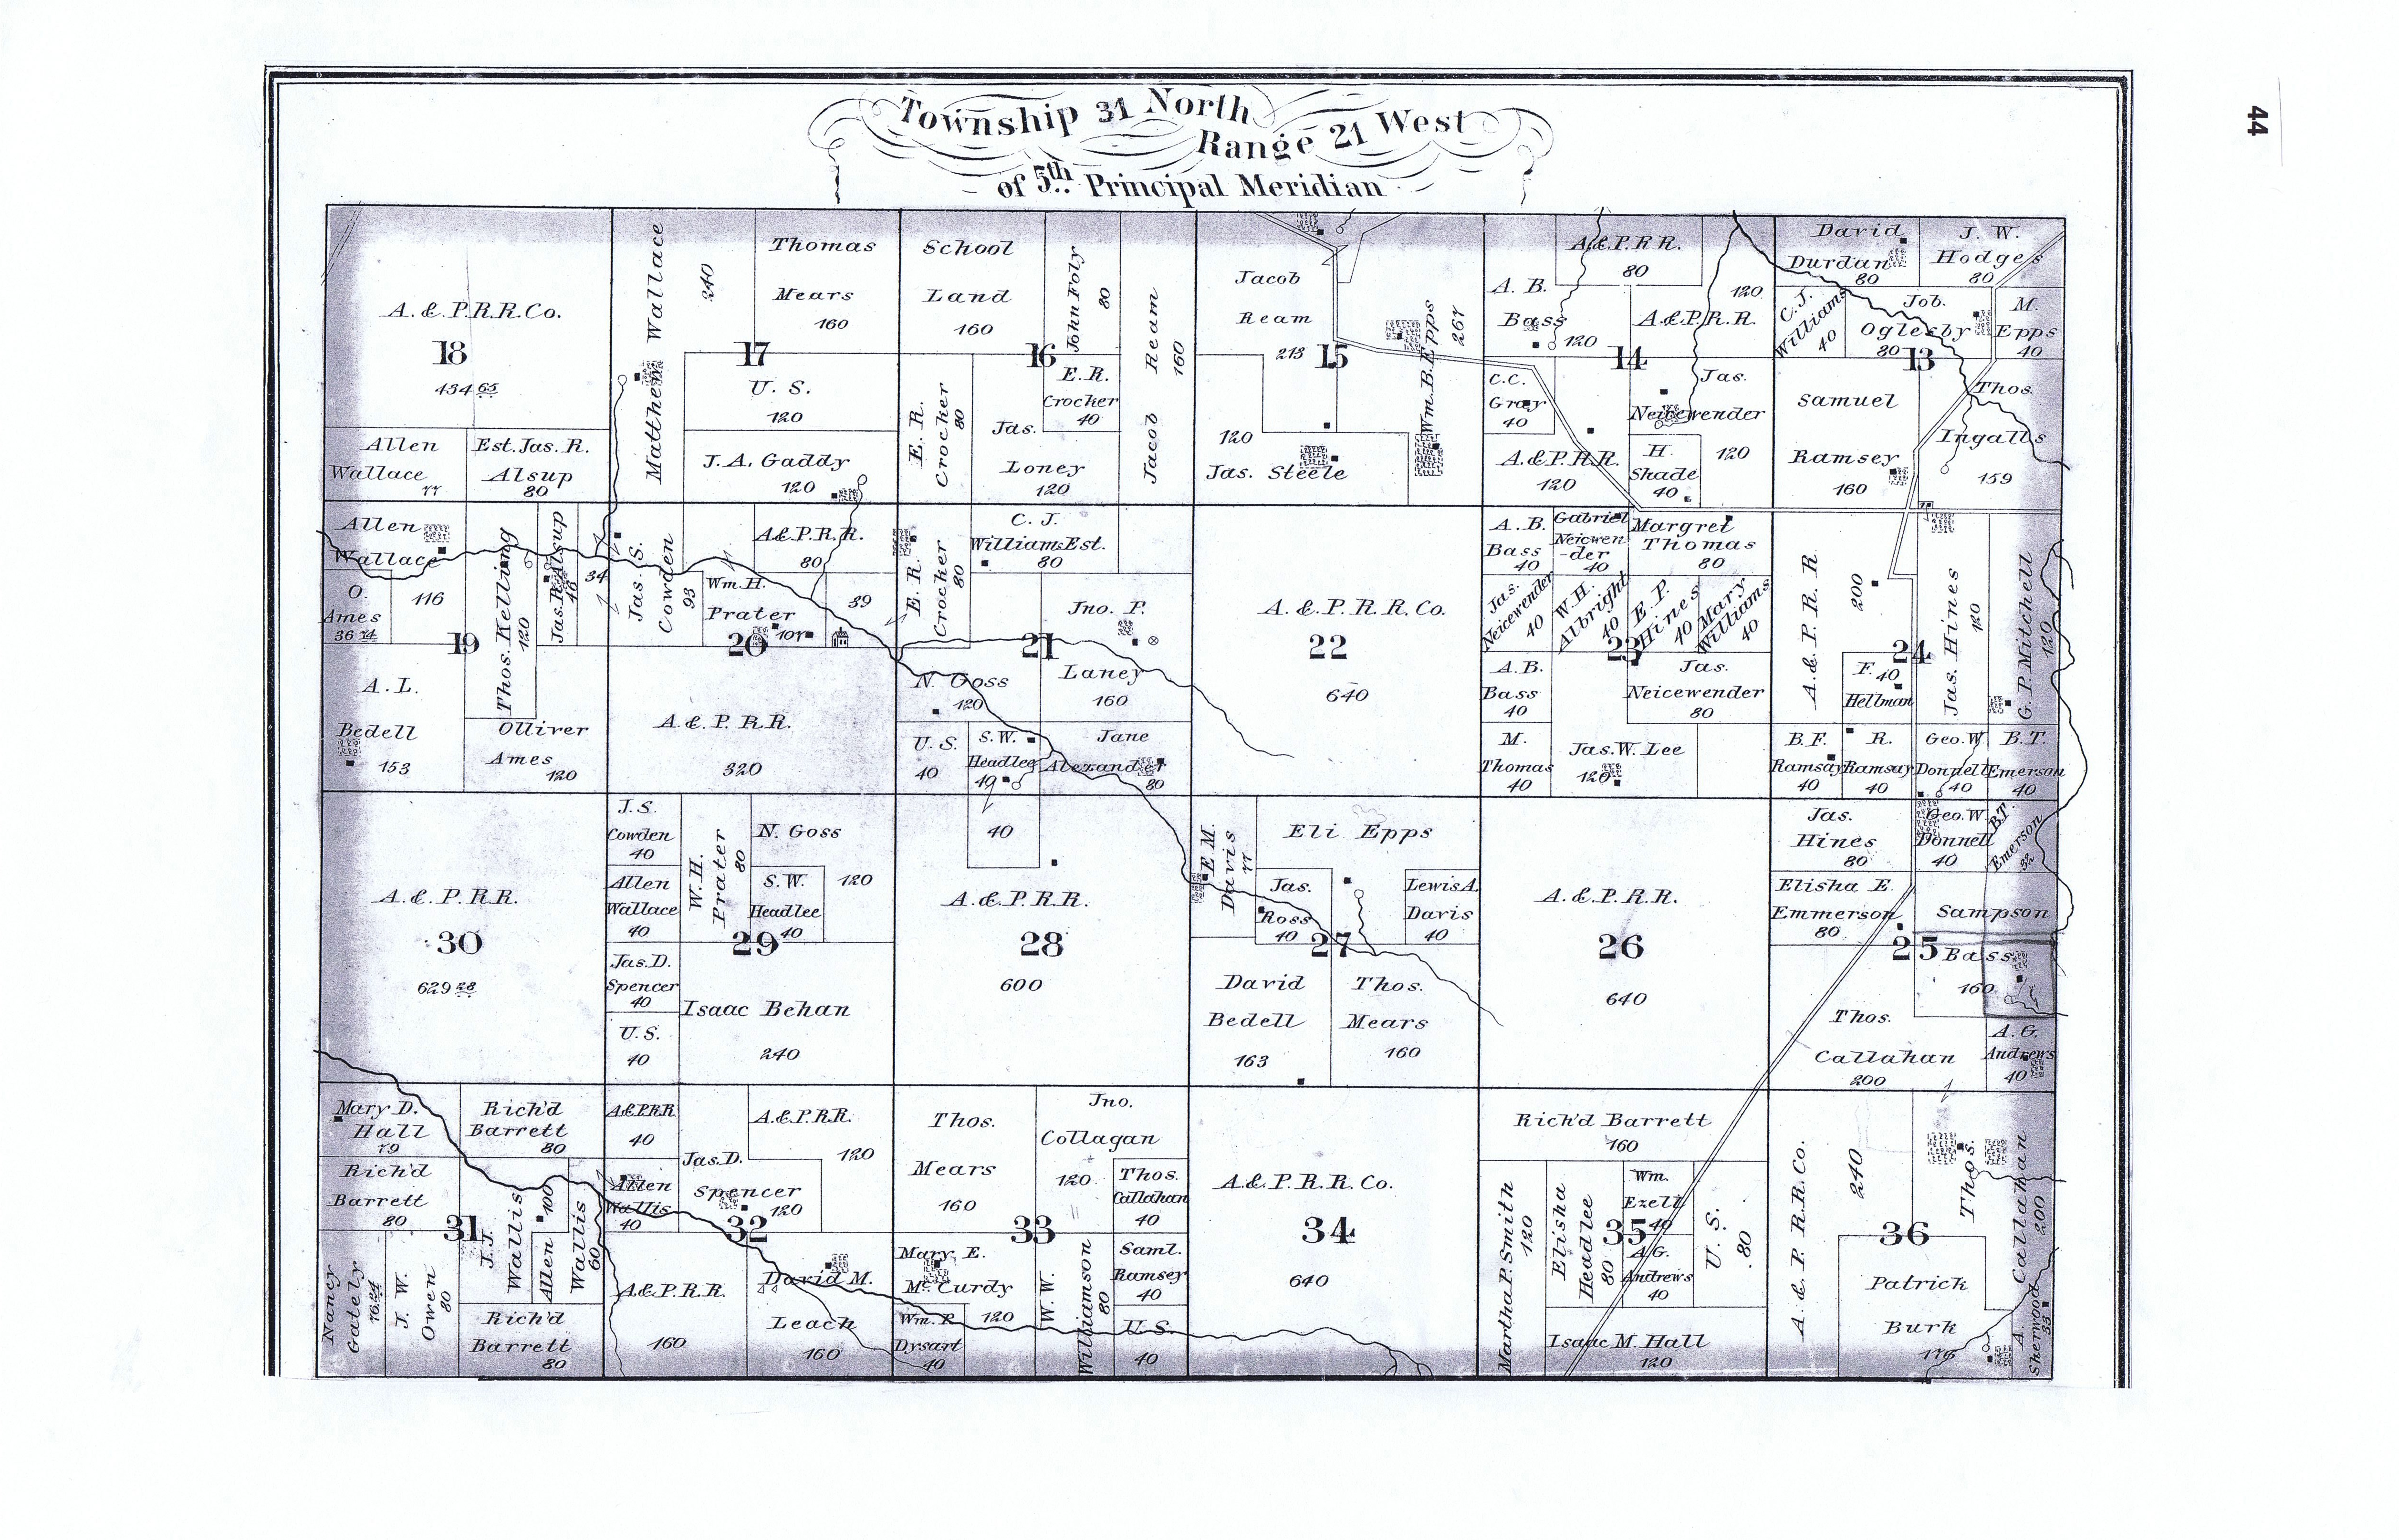 44
Township 31 North
Range 21 West
of 5th Principal Meridian
A. & P. R. R. Co.
18
434 65
Allen
Wallace
77
Est. Jas. R.
Alsup
80
Matthew Wallace
240
Thomas
Mears
160
17
U. S.
120
J. A. Gaddy
120
School
Land
160
John Foly
80
Jacob Ream
160
16
E. R.
Crocker
80
Jas.
Loney
120
E. R.
Crocker
40
Jacob
Ream
213
15
Wm. B. Epps
267
120
Jas. Steele
A. & P. R R.
80
A. B.
Bass
120
120
A. & P. R. R.
14
C. C.
Gray
40
Jas.
Neicewender
120
A. & P. R R.
120
H.
Shade
40
David
Durdan
80
J. W.
Hodges
80
C. J.
Williams
40
Job.
Oglesby
80
M.
Epps
40
13
Samuel
Ramsey
160
Thos.
Ingalls
159
Allen
Wallace
116
O.
Ames
36 74
Thos. Kelling
120
Jas. R. Alsup
46
34
19
A. L.
Bedell
153
Olliver
Ames
120
Jas. S.
Cowden
93
A & P. R. R.
80
Wm. H.
Prater
107
39
20
A. & P. R. R.
320
E. R.
Crocker
80
C. J.
Williams Est.
80
Jno. P.
Laney
160
21
N. Goss
120
U. S.
40
S. W.
Headlee
40
Jane
Alexander
80
A. & P. R. R. Co.
22
640
A. B.
Bass
40
Gabriel
Neicwen
-der
40
Margret
Thomas
80
Jas.
Neicewender
40
W. H.
Albright
40
E. P.
Hines
40
Mary
Williams
40
23
A. B.
Bass
40
Jas.
Neicewender
80
M.
Thomas
40
Jas. W. Lee
120
A. & P. R. R
200
24
Jas. Hines
120
G. P. Mitchell
120
F. 40
Hellman
B. F.
Ramsay
40
R.
Ramsay
40
Geo. W.
Donnell
40
B. T.
Emerson
40
A. & P. R R.
30
629 28
J. S.
Cowden
40
W. H.
Prater
80
N. Goss
120
Allen
Wallace
40
S. W.
Headlee
40
29
Jas. D.
Spencer
40
Isaac Behan
240
U. S.
40
40
A. & P. R R.
28
600
E M.
Davis
77
Eli Epps
Jas.
Ross
40
Lewis A.
Davis
40
27
David
Bedell
163
Thos.
Mears
160
A. & P. R R.
26
640
Jas.
Hines
80
Geo. W.
Donnell
40
B. T.
Emerson
32
Elisha E.
Emmerson
80
Sampson
Bass
160
25
Thos.
Callahan
200
A. G.
Andrews
40
Mary D.
Hall
79
Rich'd
Barrett
80
Rich'd
Barrett
80
31
J. J.
Wallis
Allen
Wallis
100
60
Nancy
Gately
76.24
J. W.
Owen
80
Rich'd
Barrett
80
A & P. R R
40
A. & P. R R.
120
Jas. D.
Spencer
120
Allen
Wallis
40
32
A. & P. R. R.
160
David M.
Leach
160
Thos.
Mears
160
Jno.
Collagan
120
Thos.
Callahan
40
33
Mary E.
McCurdy
120
Wm. P.
Dysart
40
W. W.
Williamson
80
Saml.
Ramsey
40
U. S.
40
A. & P. R. R. Co.
34
640
Rich'd Barrett
160
Martha P. Smith
120
Elisha
Headlee
80
Wm.
Ezell
40
35
A. G.
Andrews
40
U. S.
80
Isaac M. Hall
120
A. & P. R. R. Co.
240
Thos. Callahan
200
36
Patrick
Burk
176
A.
Sherwood
33